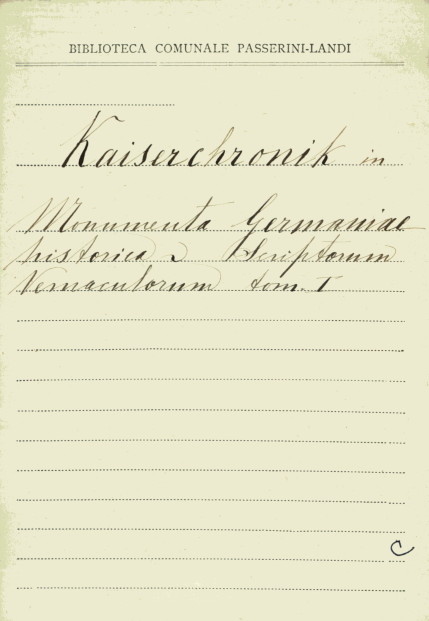 BIBLIOTECA COMUNALE PASSERINI-LANDI
Kaiserchronik in
Monumenta Germaniae
historica Scriptorum
Vernaculorum tom. I
C